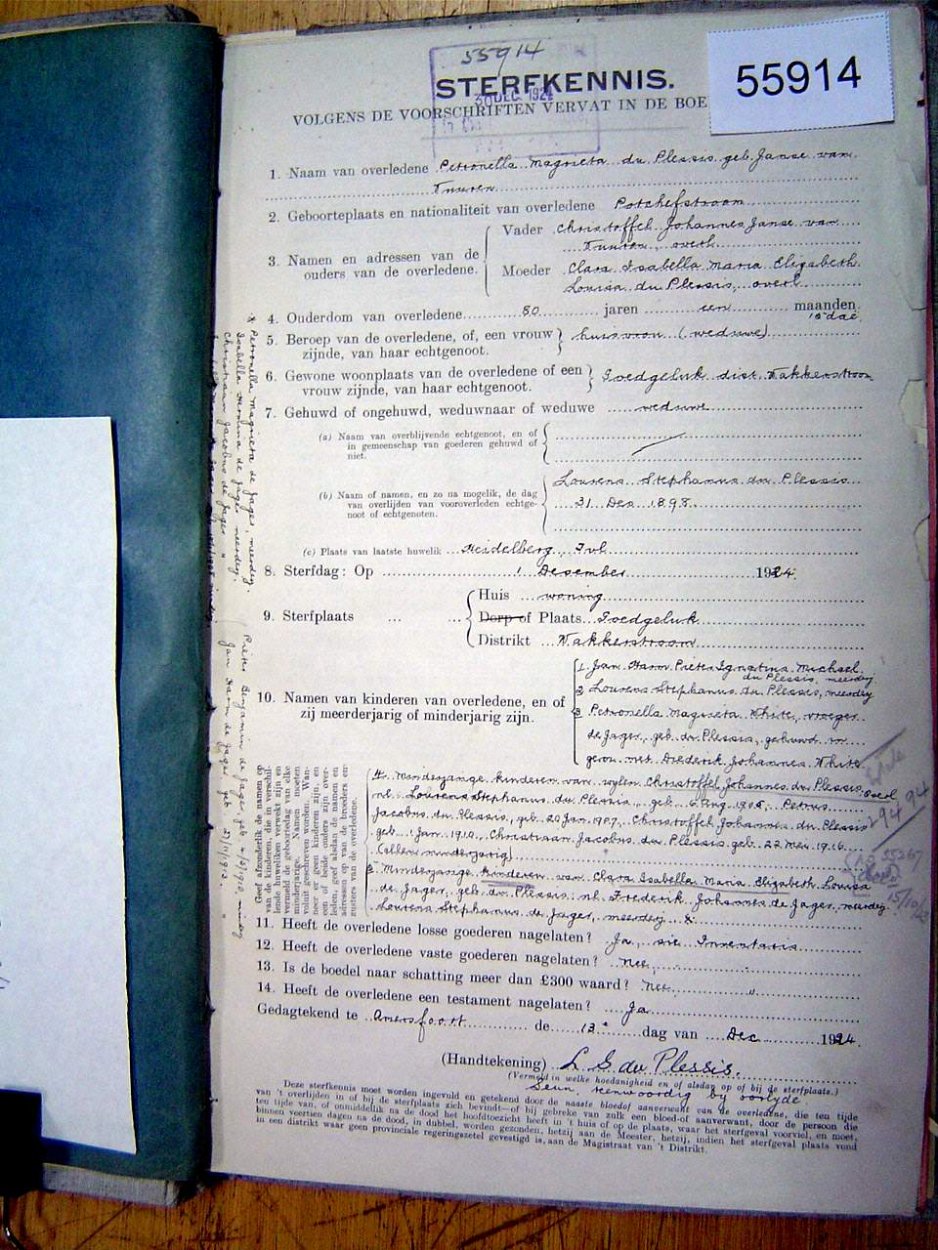 55914
55914
STERFKENNIS.
30 DEC. 1924
VOLGENS DE VOORSCHRIFTEN VERVAT IN DE BOE
1. Naam van overledene Petronella Magrieta du Plessis geb. Janse van
Tuuren
2. Geboorteplaats en nationaliteit van overledene Potchefstroom
3. Namen en adressen van de ouders van de overledene.
Vader Christoffel Johannes Janse van
Tuuren, overl.
Moeder Clara Isabella Maria Elizabeth
Louisa du Plessis, overl.
4. Ouderdom van overledene 80 jaren een maanden
5. Beroep van de overledene, of, een vrouw
zijnde, van haar echtgenoot.
huisvrou (weduwe)
6. Gewone woonplaats van de overledene of een
vrouw zijnde, van haar echtgenoot.
Goedgeluk dist. Wakkerstroom
7. Gehuwd of ongehuwd, weduwnaar of weduwe weduwe
(a) Naam van overblijvende echtgenoot, en of
in gemeenschap van goederen gehuwd of
niet.
(b) Naam of namen, en zo na mogelik, de dag
van overlijden van vooroverleden echtge-
noot of echtgenoten.
Lourens Stephanus du Plessis
31 Des. 1898
(c) Plaats van laatste huwelik Heidelberg, Tvl.
8. Sterfdag: Op 1 Desember 1924
9. Sterfplaats
Huis woning
Dorp of Plaats Goedgeluk
Distrikt Wakkerstroom
10. Namen van kinderen van overledene, en of
zij meerderjarig of minderjarig zijn.
1. Jan Harm Pieter Ignatius Michael
du Plessis, meerdej
2 Lourens Stephanus du Plessis, meerdej
3 Petronella Magrieta White, vroeger
de Jager, geb. du Plessis, gehuwd in
gem. met Diederik Johannes White
Geef afzonderlik de namen op
van de kinderen, die in verschil-
lende huweliken verwekt zijn en
vermeld de geboortedag van elke
minderjarige. Namen moeten
voluit geschreven worden. Wan-
neer er geen kinderen zijn, en
een of beide ouders zijn over-
leden, geef alsdan de namen en
adressen op van de broeders en
zusters van de overledene.
4. Minderjarige kinderen van wylen Christoffel Johannes du Plessis, overl
nl. Lourens Stephanus du Plessis, geb. 6 Aug. 1905, Petrus
Jacobus du Plessis, geb. 20 Jan 1907, Christoffel Johannes du Plessis
geb. 1 Jan. 1910, Christiaan Jacobus du Plessis geb. 22 Mei 1916
(allen minderjarig)
5. Minderjarige kinderen van Clara Isabella Maria Elizabeth Louisa
de Jager, geb. du Plessis nl. Frederik Johannes de Jager, meerdej
Lourens Stephanus de Jager, meerdej
* Petronella Magrieta de Jager, meerdej.
Isabella de Jager meerdej.
Christiaan Jacobus de Jager "
Pieter Benjamin de Jager geb
Jan Harm de Jager geb.
11. Heeft de overledene losse goederen nagelaten? Ja, sie Inventaris
12. Heeft de overledene vaste goederen nagelaten? Nee
13. Is de boedel naar schatting meer dan £300 waard? Nee
14. Heeft de overledene een testament nagelaten? Ja
Gedagtekend te Amersfoort de 13e dag van Dec 1924.
(Handtekening) L S du Plessis.
(Vermeld in welke hoedanigheid en of alsdan op of bij de sterfplaats.)
Seun teenwoordig by
Deze sterfkennis moet worden ingevuld en getekend door de naaste bloedof aanverwant van de overledene, die ten tijde
van 't overlijden in of bij de sterfplaats zich bevindt—of bij gebreke van zulk een bloed-of aanverwant, door de persoon die
ten tijde van, of onmiddellik na de dood het hoofdtoezicht heeft in 't huis of op de plaats, waar het sterfgeval voorviel, en moet,
binnen veertien dagen na de dood, in dubbel, worden gezonden, hetzij aan de Meester, hetzij, indien het sterfgeval plaats vond
in een distrikt waar geen provinciale regeringszetel gevestigd is, aan de Magistraat van 't Distrikt.